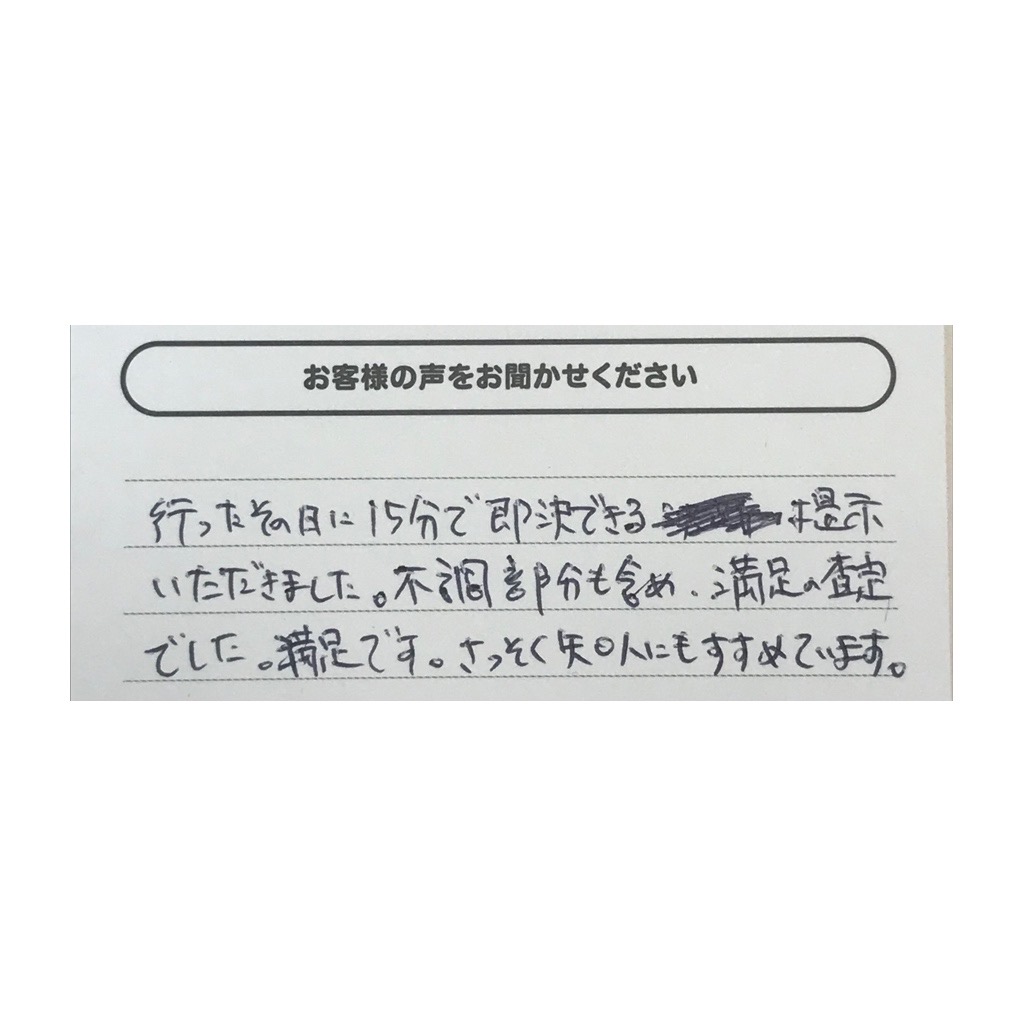 お客様の声をお聞かせください
行ったその日に15分で即決できる 提示
いただきました。不調部分も含め、満足の査定
でした。満足です。さっそく知人にもすすめています。